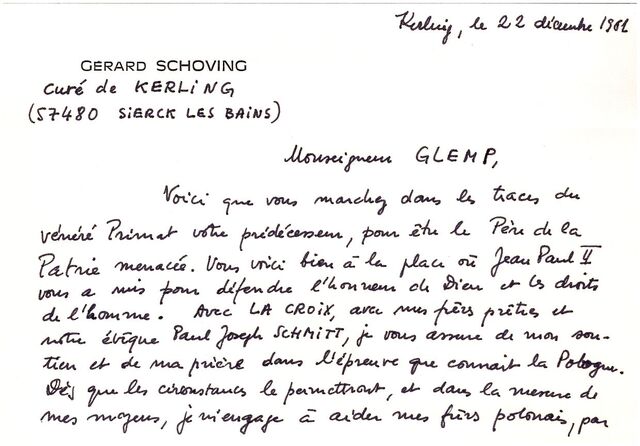 Kerling, le 22 décembre 1981
GERARD SCHOVING
curé de KERLING
(57480 SIERCK LES BAINS)
Monseigneur GLEMP,
Voici que vous marchez dans les traces du
vénéré Primat votre prédécesseur, pour être le Père de la
Patrie menacée. Vous voici bien à la place où Jean Paul II
vous a mis pour défendre l'honneur de Dieu et les droits
de l'homme. Avec LA CROIX, avec mes frères prêtres et
notre évêque Paul Joseph SCHMITT, je vous assure de mon sou-
tien et de ma prière dans l'épreuve que connait la Pologne.
Dès que les circonstances le permettront, et dans la mesure de
mes moyens, je m'engage à aider mes frères polonais, par